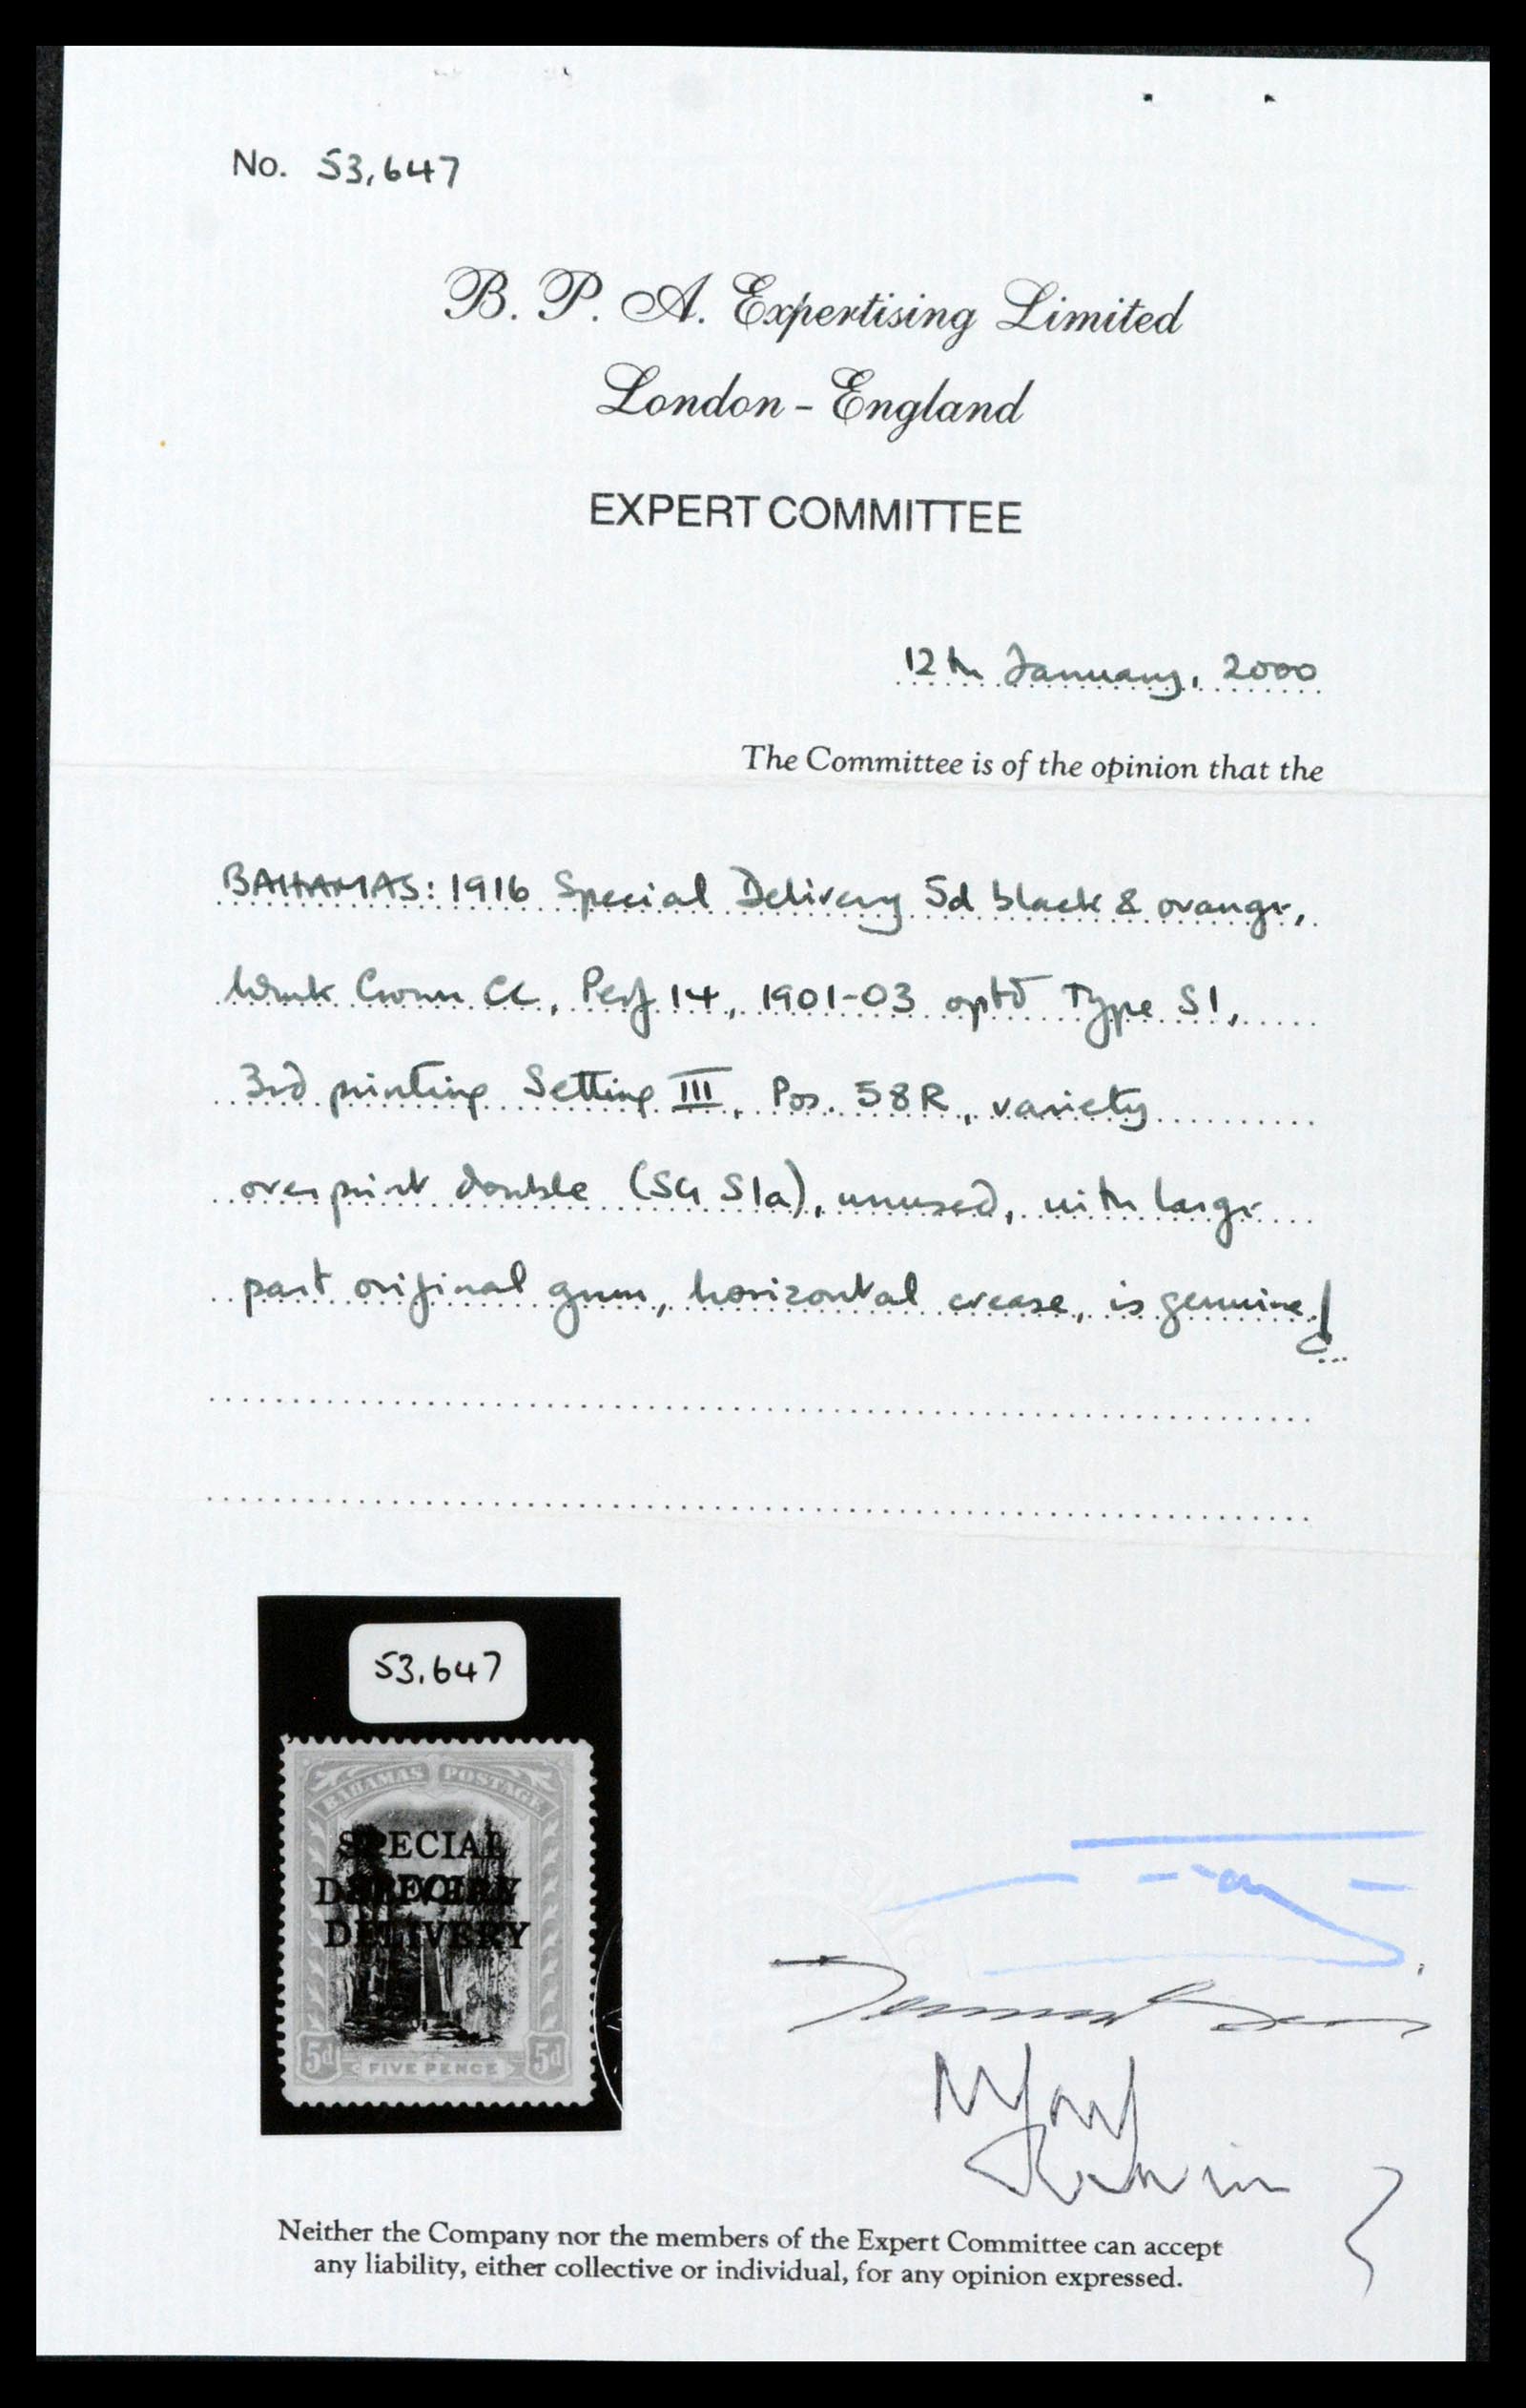 No. 53,647
B. P. A. Expertising Limited
London - England
EXPERT COMMITTEE
12th January, 2000
The Committee is of the opinion that the
BAHAMAS: 1916 Special Delivery 5d black & orange,
Wmk Crown CC, Perf 14, 1901-03 optd Type S1,
3rd printing Setting III, Pos. 58R, variety
overprint double (SG S1a), unused, with large
part original gum, horizontal crease, is genuine.
53,647
BAHAMAS POSTAGE
SPECIAL
DELIVERY
SPECIAL
DELIVERY
5d FIVE PENCE 5d
Neither the Company nor the members of the Expert Committee can accept
any liability, either collective or individual, for any opinion expressed.